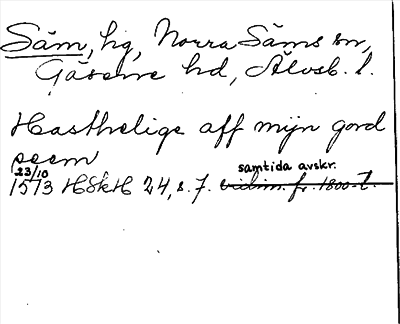 Säm, hg, Norra Säms sn,
Gäsene hd, Älvsb. l.
Hasthelige aff mijn gord
seem
23/10 samtida avskr.
1573 HSkH 24, s. 7. vidim. fr. 1800-t.